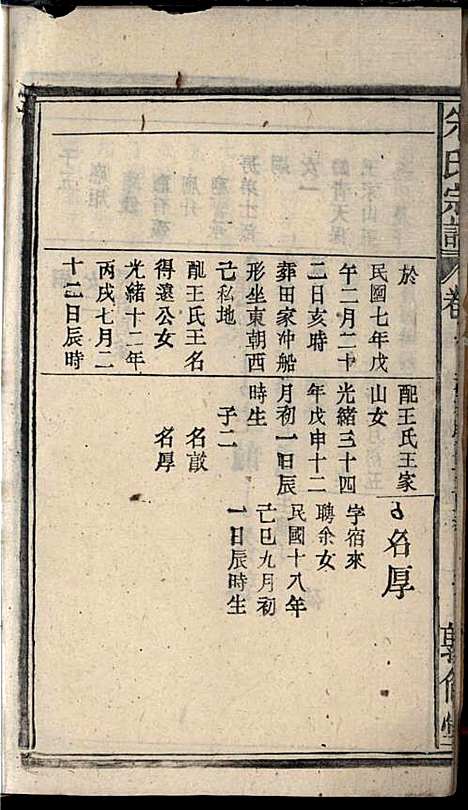 朱氏宗譜
卷
於
民國七年戊
午二月二十
二日亥時
葬田家冲船
形坐東朝西
己私地
配王氏王名
得遠公女
光緒十二年
丙戌七月二
十二日辰時
配王氏王家
山女
光緒三十四
年戊申十二
月初一日辰
時生
子二
名諔
名厚
名厚
字宿來
聘余女
民國十八年
己巳九月初
一日辰時生